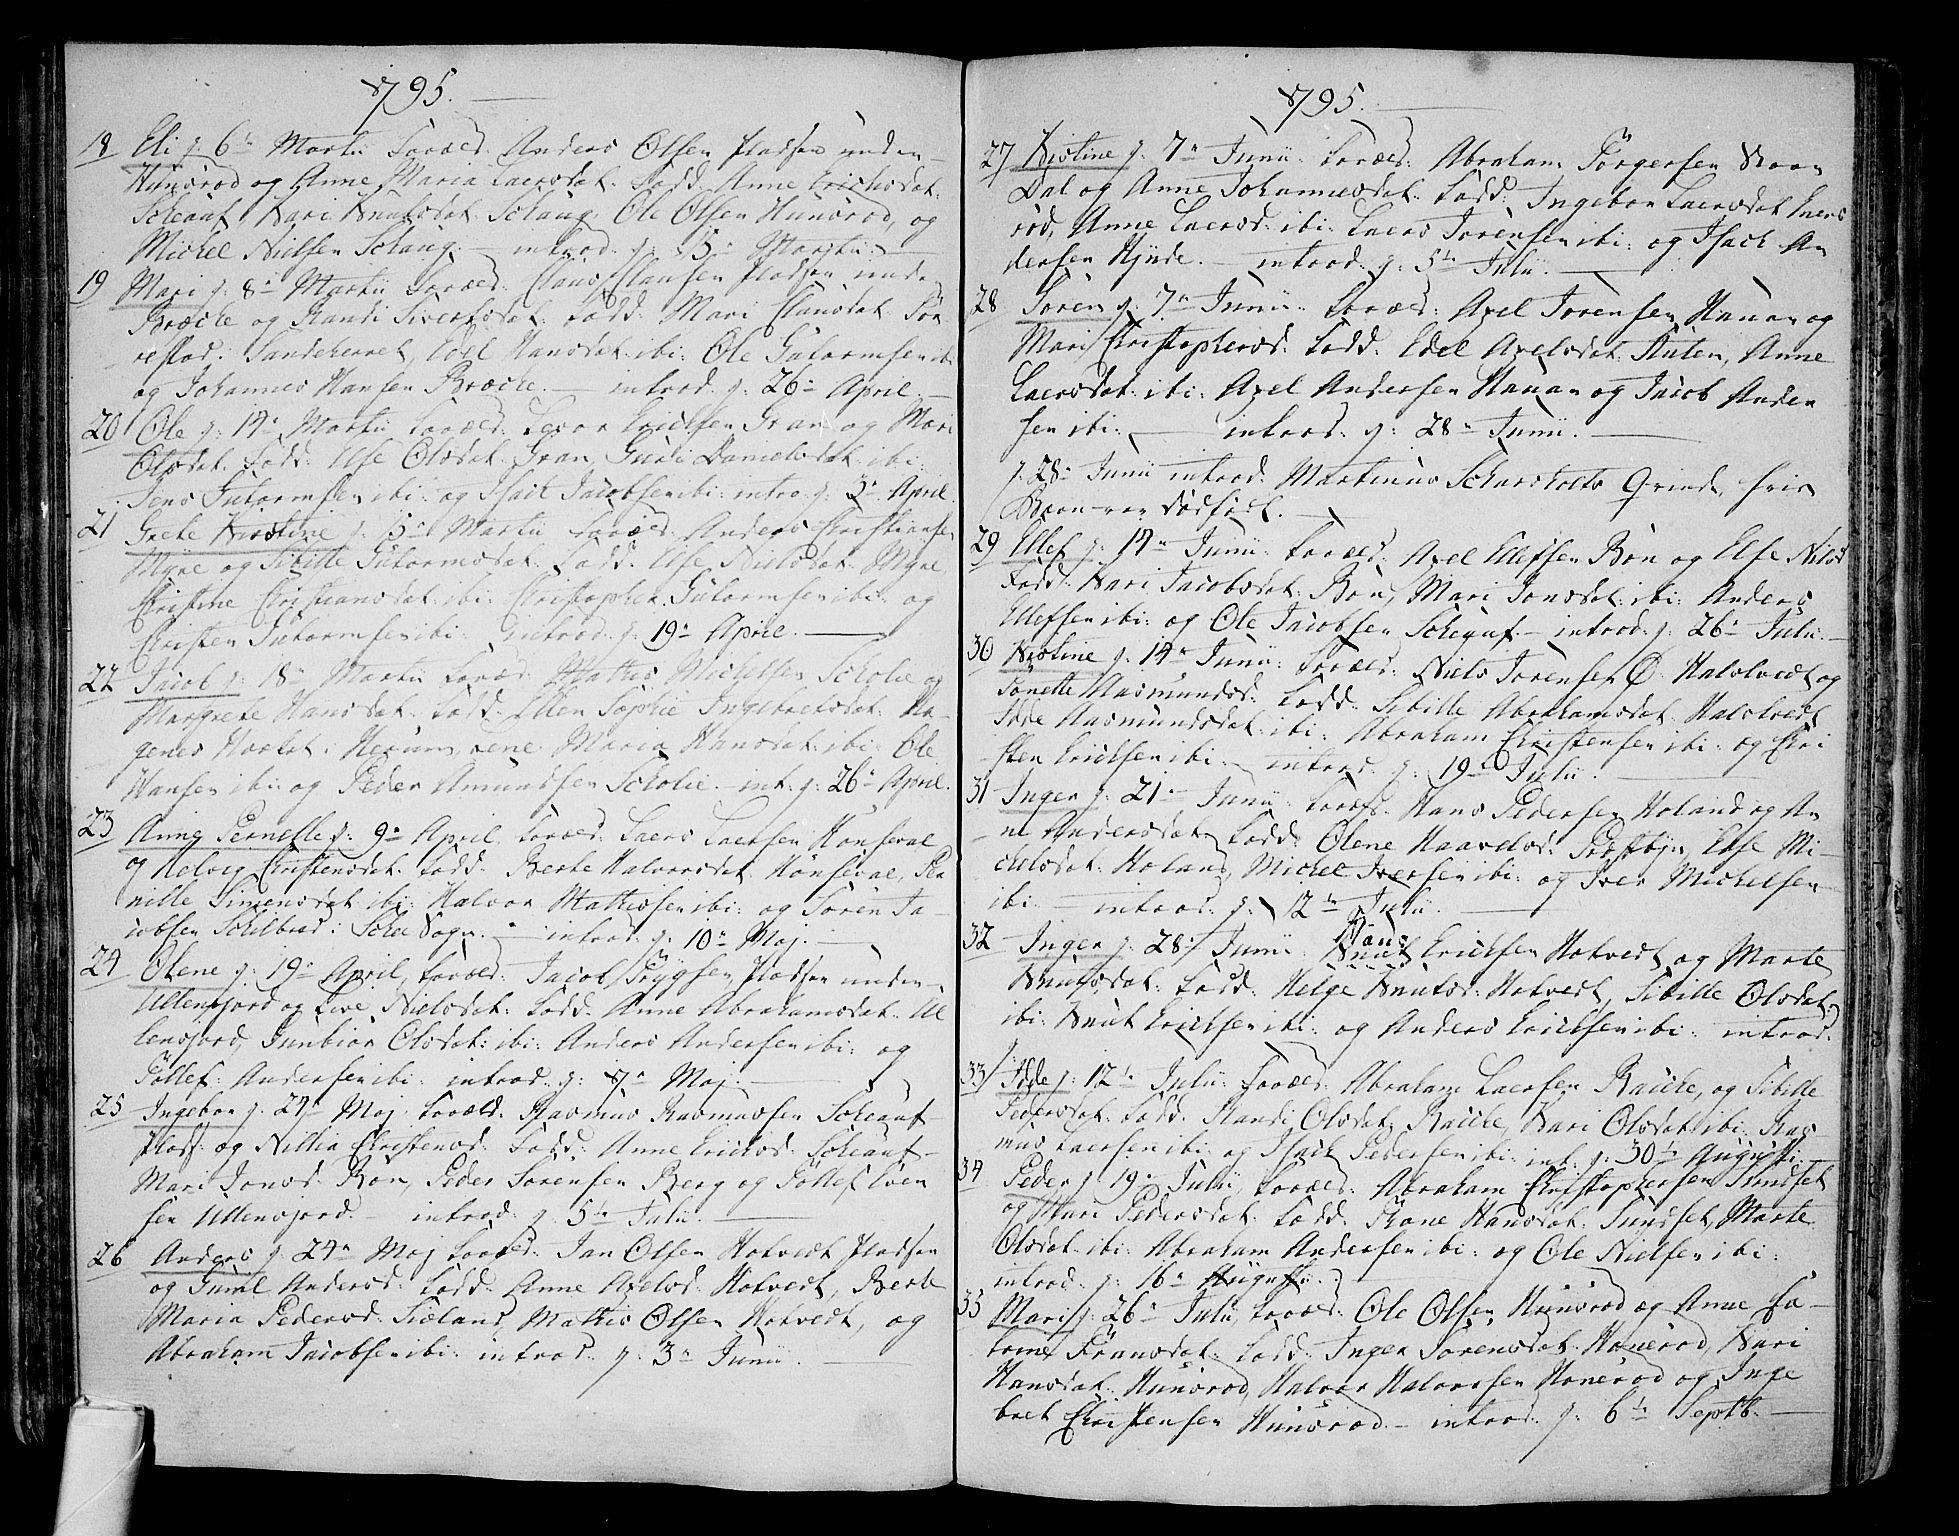 1795.
18 Eli g. 6te Martii Foræld. Anders Olsen Pladsen under
Hunsrød og Anne Maria Laersdat. Fadd. Anne Erichsdat.
Scheauf, Kari Knutsdat. Schaug, Ole Olsen Hunsrød, og
Michel Nielsen Schaug. introd. g. 15de Martii.
19 Mari g. 8de Martii Foræld. Claus Clausen Pladsen under
Bræche og Randi Sivertsdat. Fadd. Mari Clausdat.
Sandeherret, Hansdat. ibi: Ole Gutormsen ibi:
og Johannes Hansen Bræche. introd. g. 26de April
20 Ole g. 14de Martii Foræld. Erichsen Gran og Mari
Olsdat. Fadd. Else Olsdat. Gran, Guri Danielsdat ibi:
Jens Gutormsen ibi: og Isach Jacobsen ibi: intro. g. 3de April.
21 Grete Kirstine g. 15de Martii Foræld. Anders Christiansen
Myre og Sibille Gutormsdat. Fadd. Else Nielsdat. Myre
Christine Christiansdat. ibi: Christopher Gutormsen ibi: og
Christen Gutormsen ibi: introd. g. 19de April.
22 Jacob g. 18de Martii Foræld. Mathis Michelsen Scholie og
Margrete Hansdat. Fadd. Ellen Sophie Ingebretsdat. Ha-
genes i Hexum, Maria Hansdat. ibi: Ole
Hansen ibi: og Peder Amundsen Scholie. int. g. 26de April.
23 Anne Pernelle g. 9de April. Foræld. Laers Laersen Honseval
og Helvig Christensdat. Fadd. Berte Halvorsdat. Honseval, Per
nille Simensdat ibi: Halvor Mathisen ibi: og Søren Ja-
cobsen Schilbred i Schee Sogn. introd. g. 10de Maj.
24 Olene g. 19de April, Foræld. Jacob Trygsen Pladsen under
Ullensjord og Live Nielsdat. Fadd. Anne Abrahamsdat. Ul
lensjord, Gunbiør Olsdat. ibi: Anders Andersen ibi: og
Tollef Andersen ibi: introd. g. 7de Maj.
25 Ingebor g. 24de Maj. Foræld. Rasmus Rasmussen Scheauf
plads. og Nillia Christensd. Fadd. Anne Ericksd. Scheauf
Mari Jonsd. Bøn, Peder Sørensen Berg og Tollef Iver
sen Ullensjord introd. g. 5te Julii.
26 Anders g. 24de Maj Foræld. Jan Olsen Hotvedt Pladsen
og Gunil Andersd. Fadd. Anne Axelsd. Hotvedt, Berte
Maria Pedersd. Siøland, Mathis Olsen Hotvedt, og
Abraham Jacobsen ibi: introd. g. 3de Junii.
1795.
27 Kirstine g. 7de Junii. Foræld. Abraham Torgersen
Dal og Anne Johannesdat. Fadd. Ingebor Laersdat
rød, Anne Laersd. ibi: Laers Sørensen ibi: og Isach An
dersen Hynde. introd. g. 5te Julii.
28 Søren g. 7de Junii. Foræld. Axel Sørensen Hauan og
Mari Christophersd. Fadd. Edel Axelsdat. Auten, Anne
Laersdat. ibi: Axel Andersen Hauan og Jacob Ander
sen ibi: introd. g. 28de Junii.
g. 28de Junii introd. Martinus Scharsholts Qvinde, hvis
Barn var dødfødt.
29 Ellef g. 14de Junii. Foræld. Axel Ellefsen Bøn og Else Nilsd
Fadd. Kari Jacobsdat. Bøn, Mari Jonsdat. ibi: Anders
Ellefsen ibi: og Ole Jacobsen Scheauf. introd. g. 26de Julii.
30 Kirstine g. 14de Junii. Foræld. Niels Sørensen Ø. Halvelvedt og
Tonette Aasmundsd. Fadd. Sibille Abrahamsdat. Halvelvedt
Idde Aasmundsdat. ibi: Abraham Christensen ibi: og Chri
sten Erichsen ibi: introd. g. 19de Julii.
31 Inger g. 21de Junii. Foræld. Hans Pedersen Holand og An
ne Andersdat. Fadd. Olene Haavelsd. Præstbyn, Else Mi-
chelsdat. Holand, Michel Iversen ibi: og Iver Michelsen
ibi: introd. g. 12te Julii.
32 Inger g. 28de Junii Hans Knut Erichsen Hotvedt og Marte
Knutsdat. Fadd. Helge Knutsd. Hotvedt, Sibille Olsdat.
ibi: Knut Erichsen ibi: og Anders Erichsen ibi: introd.
g.
33 Idde g. 12te Julii Foræld. Abraham Laersen Rauche, og Sibille
Pedersdat. Fadd. Randi Olsdat. Rauche, Kari Olsdat. ibi: Ras-
mus Laersen ibi: og Isach Pedersen ibi: int. g. 30te Augusti.
34 Peder g. 19de Julii, Foræld. Abraham Christophersen Sundset
og Mari Pedersdat. Fadd. Trone Hansdat. Sundset, Marte
Olsdat. ibi: Abraham Andersen ibi: og Ole Nielsen ibi:
introd. g. 16de Augusti.
35 Maris g. 26de Julii, Foræld. Ole Olsen Hunsrød og Anne Ca-
trine Fransdat. Fadd. Inger Sørensdat. Honerød, Kari
Hansdat. Hunsrød, Halvor Halvorsen Honerød og Inge
bret Christensen Hunsrød. introd. g. 6te Septb.